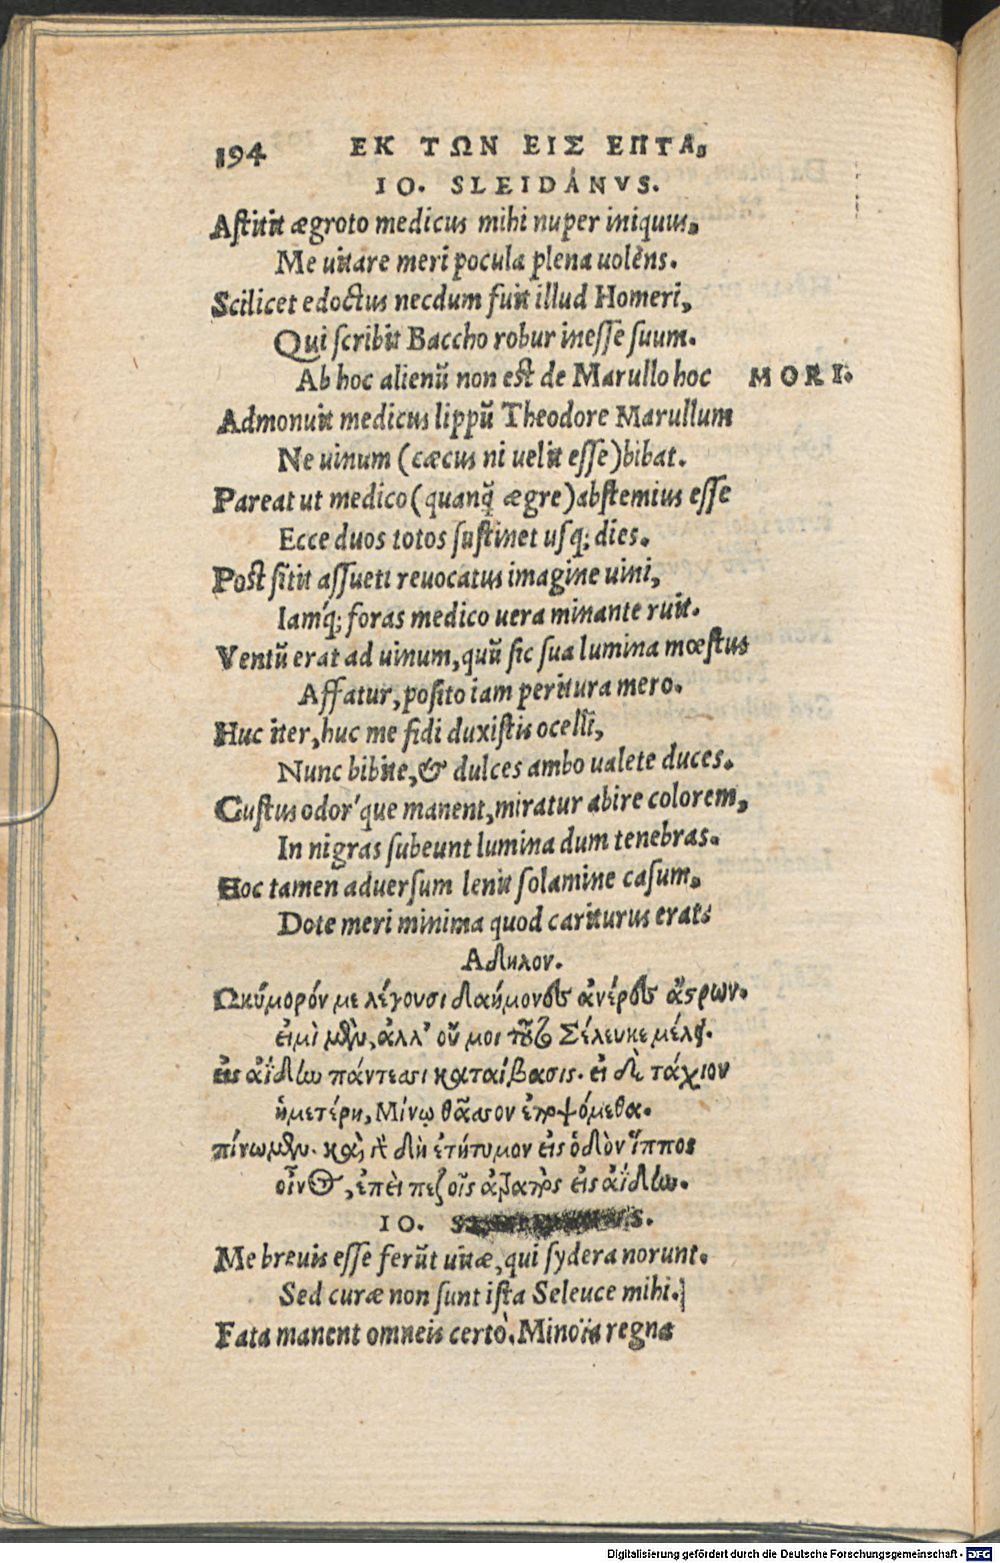 194 ΕΚ ΤΩΝ ΕΙΣ ΕΠΤΑ,
IO. SLEIDÁNVS.
Astitit ægroto medicus mihi nuper iniquus.
Me uitare meri pocula plena uolẽns.
Scilicet edoctus necdum fuit illud Homeri,
Qui scribit Baccho robur inesse suum.
Ab hoc alienũ non est de Marullo hoc MORI.
Admonuit medicus lippũ Theodore Marullum
Ne uinum (cæcus ni uelit esse) bibat.
Pareat ut medico (quanq̃ ægre) abstemius esse
Ecce duos totos sustinet usq; dies.
Post sitit assueti reuocatus imagine uini,
Iamq́; foras medico uera minante ruit.
Ventũ erat ad uinum, quũ sic sua lumina mœstus
Affatur, posito iam peritura mero.
Huc iter, huc me fidi duxistis ocelli,
Nunc bibite, & dulces ambo ualete duces.
Gustus odor'que manent, miratur abire colorem,
In nigras subeunt lumina dum tenebras.
Hoc tamen aduersum lenit solamine casum,
Dote meri minima quod cariturus erats
Αδηλον.
Ωκύμορόν με λέγουσι δαήμονες ἀνέρες ἄστρων.
εἰμὶ μὲν, ἀλλ' οὔ μοι τοῦτο Σέλευκε μέλει.
εἰς ἀΐδην πάντεσσι καταίβασις. εἰ δὲ τάχιον
ἡμετέρη, Μίνῳ θᾶσσον ἐποψόμεθα.
πίνωμεν. καὶ δὴ ἐτήτυμον εἰς ὁδὸν ἵππος
οἶνος, ἐπεὶ πεζοῖς ἀτραπὸς εἰς ἀΐδην.
IO. S.
Me breuis esse ferũt uitæ, qui sydera norunt.
Sed curæ non sunt ista Seleuce mihi.
Fata manent omneis certò. Minoïa regna
Digitalisierung gefördert durch die Deutsche Forschungsgemeinschaft - DFG